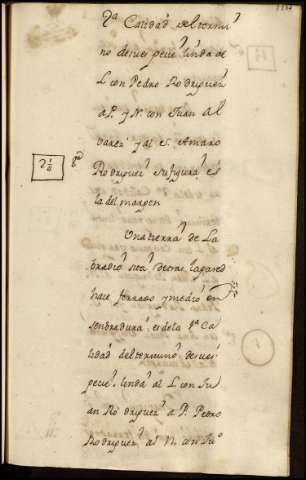 2ª Calidad del termi
no de sus pecie linda al
L con Pedro Rodriguez
a P. y N. con Juan Al
varez y al S. Amaro
Rodriguez su figura es
la del margen
Una tierra de La
bradio sita detras
hace ferrado y medio en
sembradura es de la 1ª Ca
lidad del termino de su es
pecie linda al L con Ju
an Rodriguez a P. Pedro
Rodriguez al N. con Juº